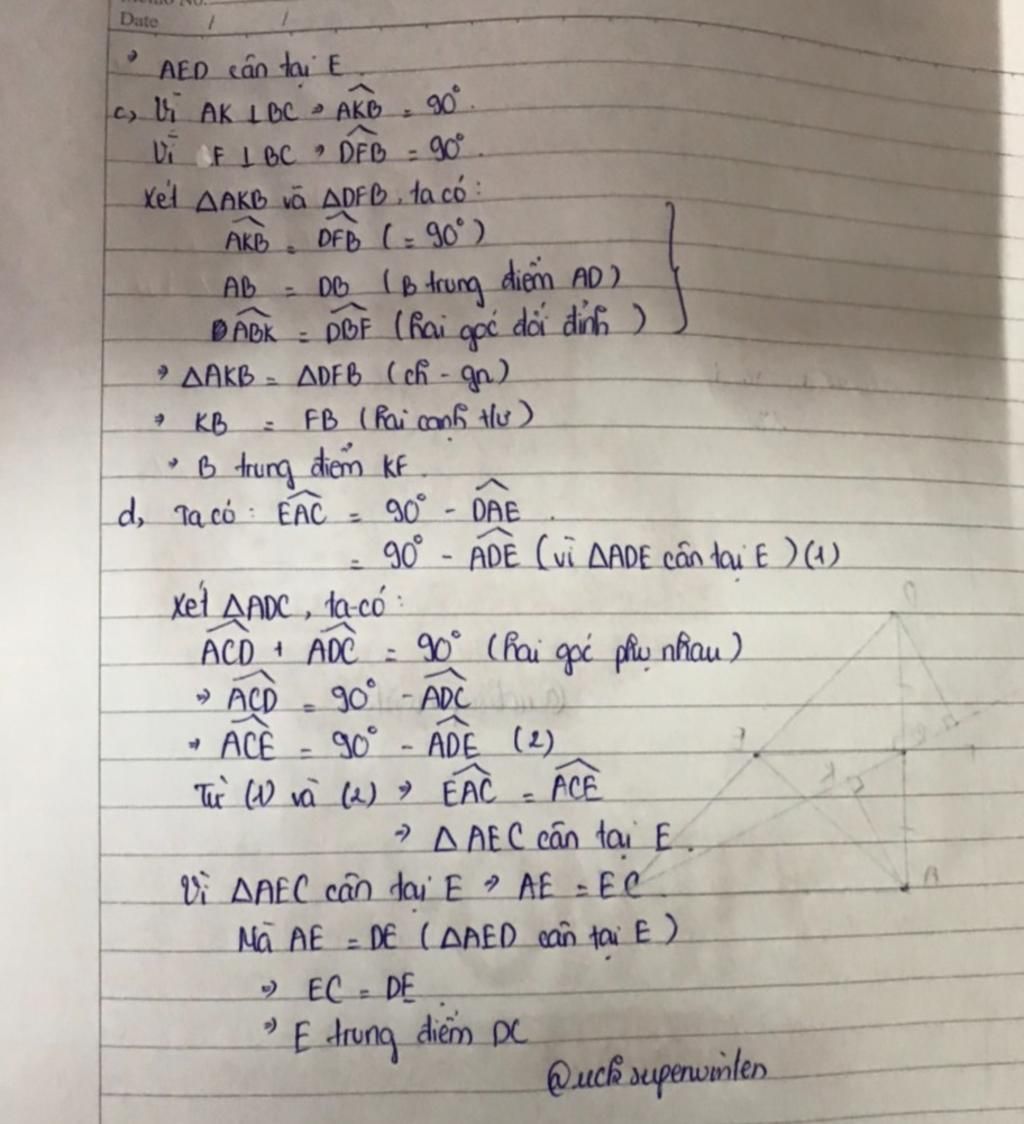 Memo No.
Date / /
⇒ AED cân tại E
c, Vì AK ⊥ BC ⇒ \widehat{AKB} = 90°.
Vì F ⊥ BC ⇒ \widehat{DFB} = 90°.
Xét ΔAKB và ΔDFB, ta có:
\widehat{AKB} = \widehat{DFB} (= 90°)
AB = DB (B trung điểm AD)
\widehat{ABK} = \widehat{DBF} (hai góc đối đỉnh)
⇒ ΔAKB = ΔDFB (ch - gn)
⇒ KB = FB (hai cạnh t/ư)
⇒ B trung điểm KF.
d, Ta có: \widehat{EAC} = 90° - \widehat{DAE}.
= 90° - \widehat{ADE} (vì ΔADE cân tại E) (1)
Xét ΔADC, ta có:
\widehat{ACD} + \widehat{ADC} = 90° (hai góc phụ nhau)
⇒ \widehat{ACD} = 90° - \widehat{ADC}
⇒ \widehat{ACE} = 90° - \widehat{ADE} (2)
Từ (1) và (2) ⇒ \widehat{EAC} = \widehat{ACE}
⇒ ΔAEC cân tại E.
Vì ΔAEC cân tại E ⇒ AE = EC.
Mà AE = DE (ΔAED cân tại E)
⇒ EC = DE.
⇒ E trung điểm DC